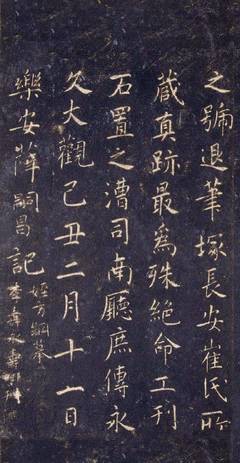 之號退筆塚長安崔氏所
藏真跡最為殊絕命工刊
石置之漕司南廳庶傳永
久大觀己丑二月十一日
樂安薛嗣昌記
姪方綱摹
李壽永壽明刊